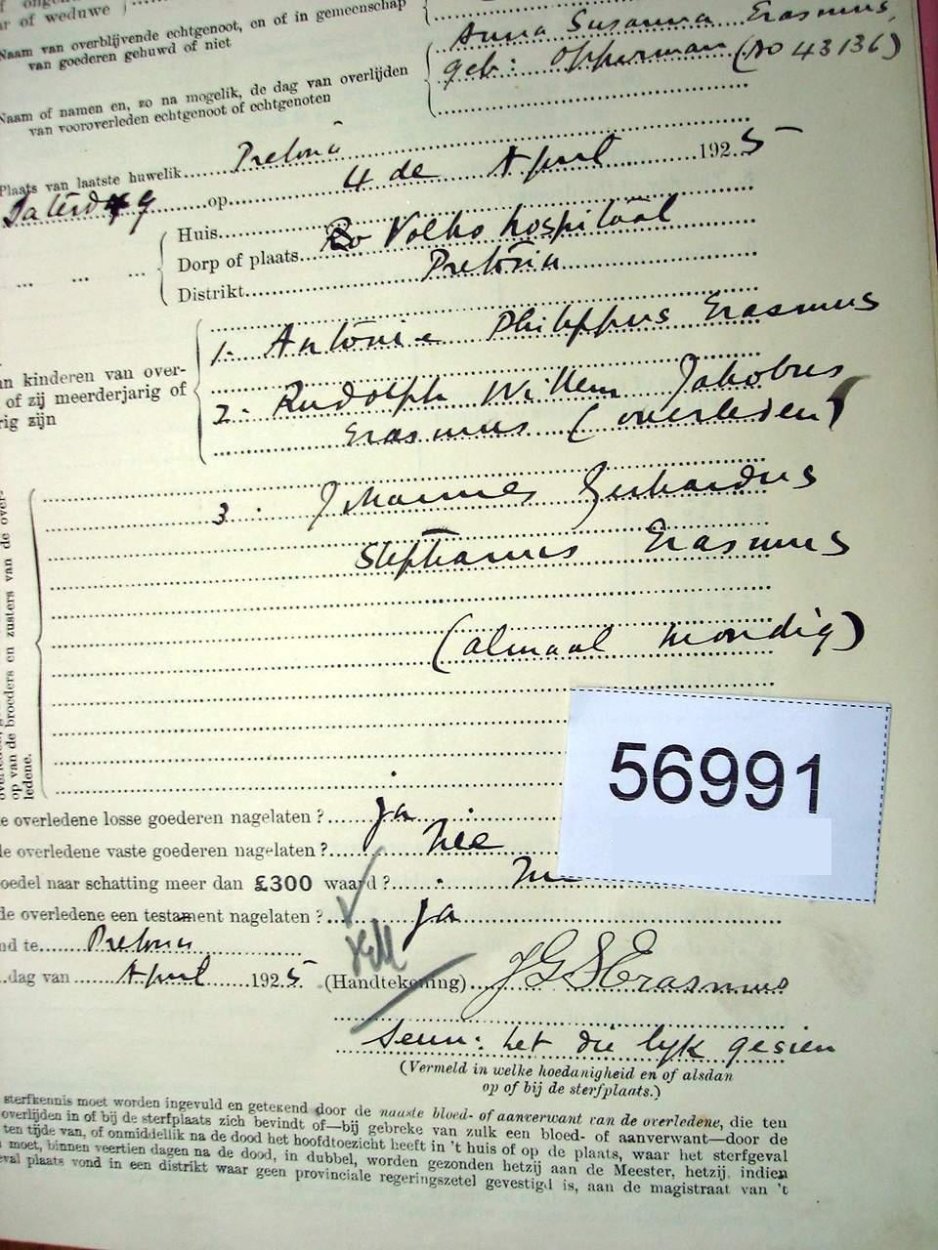 ar of weduwe
Naam van overblijvende echtgenoot, en of in gemeenschap
van goederen gehuwd of niet
Anna Susanna Erasmus,
geb: Opperman (No 43136)
Naam of namen en, zo na mogelik, de dag van overlijden
van vooroverleden echtgenoot of echtgenoten
Plaats van laatste huwelik Pretoria
Saterdag op 4 de April 1925
Huis
Dorp of plaats Volks hospitaal
Distrikt Pretoria
1. Antonie Philippus Erasmus
an kinderen van over-
of zij meerderjarig of
rig zijn
2. Rudolph Willem Jakobus
Erasmus (overleden)
3. Johannes Gerhardus
Stephanus Erasmus
(almaal mondig)
op van de broeders en zusters van de over-
ledene.
56991
e overledene losse goederen nagelaten? Ja
de overledene vaste goederen nagelaten? Nee
oedel naar schatting meer dan £300 waard?
de overledene een testament nagelaten? Ja
nd te Pretoria
dag van April 1925
(Handtekening) JGSErasmus
Seun: het die lyk gesien
(Vermeld in welke hoedanigheid en of alsdan
op of bij de sterfplaats.)
sterfkennis moet worden ingevuld en getekend door de naaste bloed- of aanverwant van de overledene, die ten
overlijden in of bij de sterfplaats zich bevindt of—bij gebreke van zulk een bloed- of aanverwant—door de
ten tijde van, of onmiddellik na de dood het hoofdtoezicht heeft in 't huis of op de plaats, waar het sterfgeval
moet, binnen veertien dagen na de dood, in dubbel, worden gezonden hetzij aan de Meester, hetzij, indien
eval plaats vond in een distrikt waar geen provinciale regeringszetel gevestigd is, aan de magistraat van 't